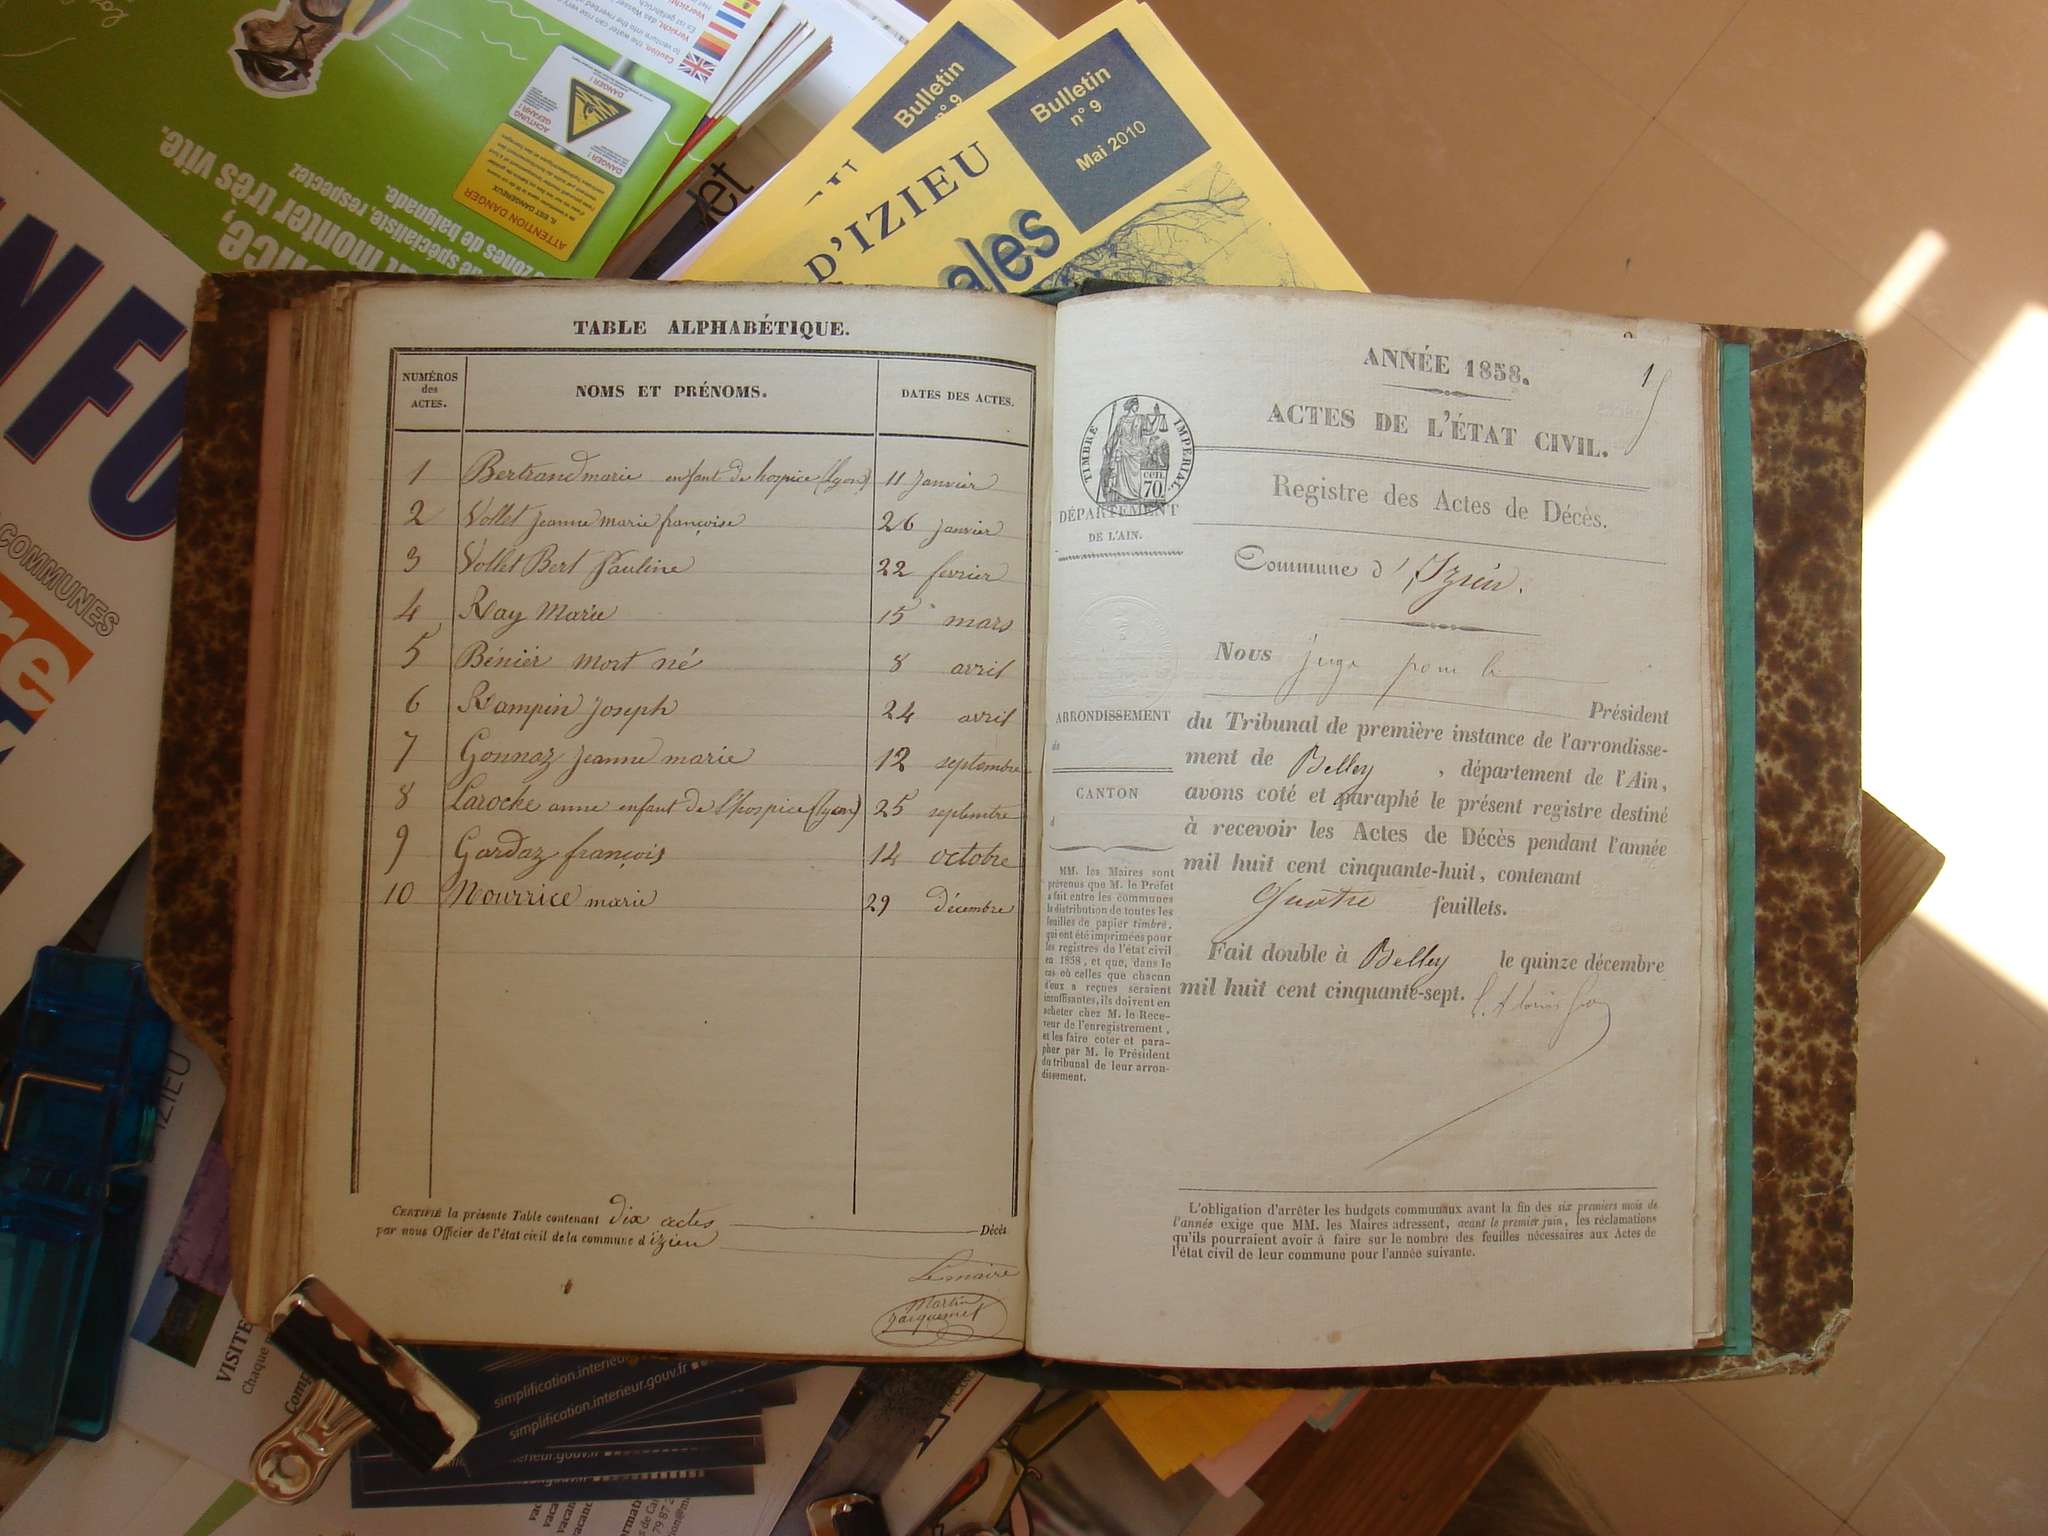 Bulletin
n° 9
Bulletin
n° 9
Mai 2010
D'IZIEU
ales
Caution, the water can rise very
to venture into the riverbed
ACHTUNG GEFAHR !
DANGER !
DANGER !
ATTENTION DANGER
IL EST DANGEREUX
monter très vite.
que spécialiste, respectez
zones de baignade.
NFO
COMMUNES
re
TABLE ALPHABÉTIQUE.
NUMÉROS des ACTES. NOMS ET PRÉNOMS. DATES DES ACTES.
1 Bertrand marie enfant de hospice (lyon) 11 Janvier
2 Vollet Jeanne marie françoise 26 Janvier
3 Vollet Bert Pauline 22 fevrier
4 Ray Marie 15 mars
5 Bénier mort né 8 avril
6 Rampin Joseph 24 avril
7 Gonnaz Jeanne marie 12 septembre
8 Laroche anne enfant de l'hospice (lyon) 25 septembre
9 Gardaz françois 14 octobre
10 Nourrice marie 29 décembre
CERTIFIÉ la présente Table contenant dix actes Décès
par nous Officier de l'état civil de la commune d'izieu
Le maire
Martin
Jacquemet
ANNÉE 1858.
1
ACTES DE L'ÉTAT CIVIL.
TIMBRE IMPERIAL
cen
70
Registre des Actes de Décès.
DÉPARTEMENT
DE L'AIN.
Commune d'Izieu.
Nous juge pour le
Président
ARRONDISSEMENT
de
du Tribunal de première instance de l'arrondisse-
ment de Belley, département de l'Ain,
CANTON
d
avons coté et paraphé le présent registre destiné
à recevoir les Actes de Décès pendant l'année
mil huit cent cinquante-huit, contenant
Quatre feuillets.
Fait double à Belley le quinze décembre
mil huit cent cinquante-sept.
MM. les Maires sont
prévenus que M. le Préfet
a fait entre les communes
la distribution de toutes les
feuilles de papier timbré,
qui ont été imprimées pour
les registres de l'état civil
en 1858, et que, dans le
cas où celles que chacun
d'eux a reçues seraient
insuffisantes, ils doivent en
acheter chez M. le Rece-
veur de l'enregistrement,
et les faire coter et para-
pher par M. le Président
du tribunal de leur arron-
dissement.
L'obligation d'arrêter les budgets communaux avant la fin des six premiers mois de
l'année exige que MM. les Maires adressent, avant le premier juin, les réclamations
qu'ils pourraient avoir à faire sur le nombre des feuilles nécessaires aux Actes de
l'état civil de leur commune pour l'année suivante.
IZIEU
VISITE
Chaque
simplification.interieur.gouv.fr
simplification.interieur.gouv.fr
interieur.gouv.fr